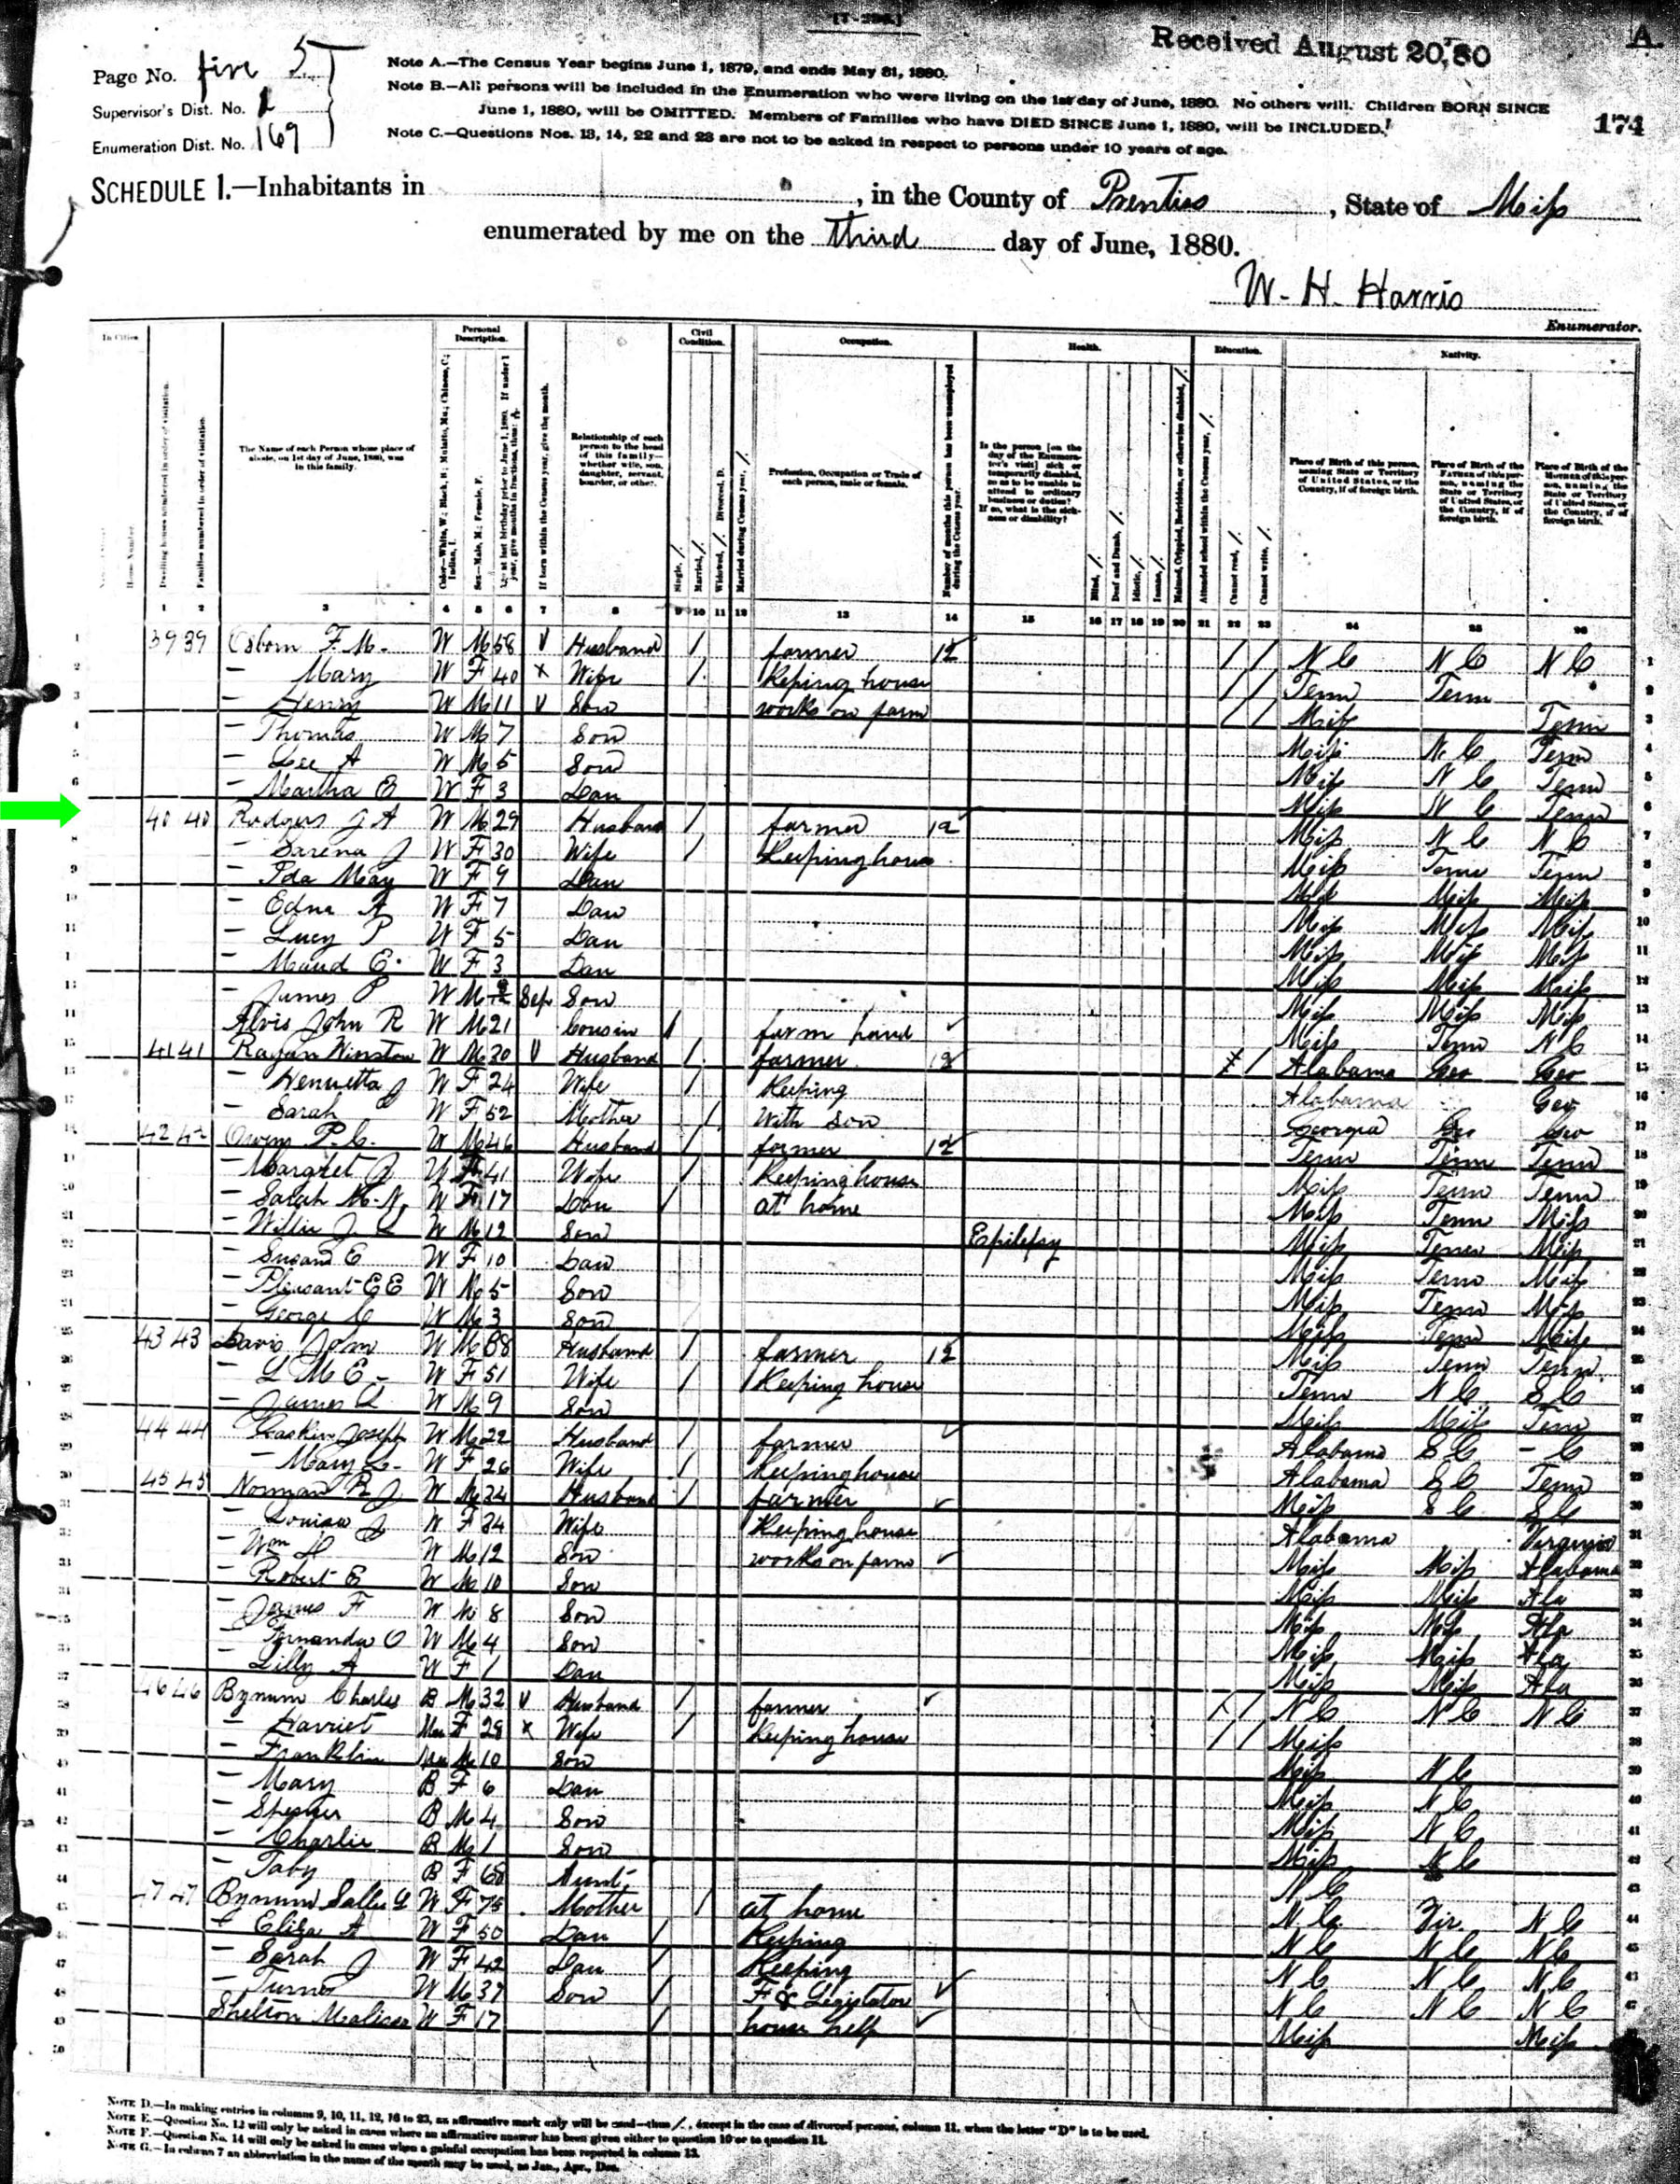 [7-296.]
Received August 20,'80
A.
Page No. five 5
Supervisor's Dist. No. 1
Enumeration Dist. No. 169
Note A.—The Census Year begins June 1, 1879, and ends May 31, 1880.
Note B.—All persons will be included in the Enumeration who were living on the 1st day of June, 1880. No others will. Children BORN SINCE
June 1, 1880, will be OMITTED. Members of Families who have DIED SINCE June 1, 1880, will be INCLUDED.
Note C.—Questions Nos. 13, 14, 22 and 23 are not to be asked in respect to persons under 10 years of age.
174
SCHEDULE 1.—Inhabitants in , in the County of Prentiss , State of Miss
enumerated by me on the third day of June, 1880.
W. H. Harris
Enumerator.
In Cities Personal Description. Civil Condition. Occupation. Health. Education. Nativity.
The Name of each Person whose place of abode, on 1st day of June, 1880, was in this family.
Relationship of each person to the head of this family—whether wife, son, daughter, servant, boarder, or other.
Profession, Occupation or Trade of each person, male or female.
1 2 3 4 5 6 7 8 9 10 11 12 13 14 15 16 17 18 19 20 21 22 23 24 25 26
39 39 Osborn F. M. W M 58 Husband / farmer 12 / / N C N C N C
— Mary W F 40 x Wife / Keping house / / Tenn Tenn
— Henry W M 11 Son works on farm / / Miss Tenn
— Thomas W M 7 Son Miss N C Tenn
— Lee A W M 5 Son Miss N C Tenn
— Martha E W F 3 Dau Miss N C Tenn
40 40 Rodgers J A W M 29 Husband / farmer 12 Miss N C N C
— Sarena J W F 30 Wife / Keeping house Miss Tenn Tenn
— Ida May W F 9 Dau Miss Miss Miss
— Edna A W F 7 Dau Miss Miss Miss
— Lucy P W F 5 Dau Miss Miss Miss
— Maud E. W F 3 Dau Miss Miss Miss
— James P W M Sep Son Miss Miss Miss
Alvis John R W M 21 Cousin / farm hand Miss Tenn N C
41 41 Ragan Winston W M 30 Husband / farmer / Alabama Geo Geo
— Henrietta J W F 24 Wife / Keeping Alabama Geo
— Sarah W F 52 Mother / With Son Georgia Geo Geo
42 42 Owen P. C. W M 46 Husband / farmer 12 Tenn Tenn Tenn
— Margret J W F 41 Wife / Keeping house Miss Tenn Tenn
— Sarah M. N. W F 17 Dau / at home Miss Tenn Miss
— Willie J. L W M 12 Son Epilepsy Miss Tenn Miss
— Susan E W F 10 Dau Miss Tenn Miss
— Pleasant E E W M 5 Son Miss Tenn Miss
— George C W M 3 Son Miss Tenn Miss
43 43 Davis John W M Husband / farmer 12 Miss Tenn Tenn
— L M E W F 51 Wife / Keeping house Tenn N C S C
— James W M 9 Son Miss Miss Tenn
44 44 Gaskin Joseph W M 22 Husband / farmer Alabama S C
— Mary W F 26 Wife / Keeping house Alabama S C Tenn
45 45 Norman R J W M 34 Husband / farmer Miss S C S C
— Louisa J W F 34 Wife Keeping house Alabama Virginia
— Wm W M 12 Son works on farm Miss Miss Alabama
— Robert E W M 10 Son Miss Miss Ala
— James F W M 8 Son Miss Miss Ala
— Fernanda O W M 4 Son Miss Miss Ala
— Lilly A W F 1 Dau Miss Miss Ala
46 46 Bynum Charles B M 32 Husband / farmer / / N C N C N C
— Harriet Mu F 28 x Wife / Keeping house / / Miss
— Franklin Mu M 10 Son Miss N C
— Mary B F 6 Dau Miss N C
— Spencer B M 4 Son Miss N C
— Charlie B M 1 Son Miss N C
— Taby B F 68 Aunt N C
47 47 Bynum Salley W F 75 Mother / at home N C Vir N C
— Eliza A W F 50 Dau / Keeping N C N C N C
— Sarah J W F 42 Dau / Keeping N C N C N C
— Turner W M 37 Son / F & Legislator N C N C N C
Shelton Malissa W F 17 / house help Miss Miss
Note D.—In making entries in columns 9, 10, 11, 12, 16 to 23, an affirmative mark only will be used—thus /, except in the case of divorced persons, column 11, when the letter "D" is to be used.
Note E.—Question No. 12 will only be asked in cases where an affirmative answer has been given either to question 10 or to question 11.
Note F.—Question No. 14 will only be asked in cases when a gainful occupation has been reported in column 13.
Note G.—In column 7 an abbreviation in the name of the month may be used, as Jan., Apr., Dec.